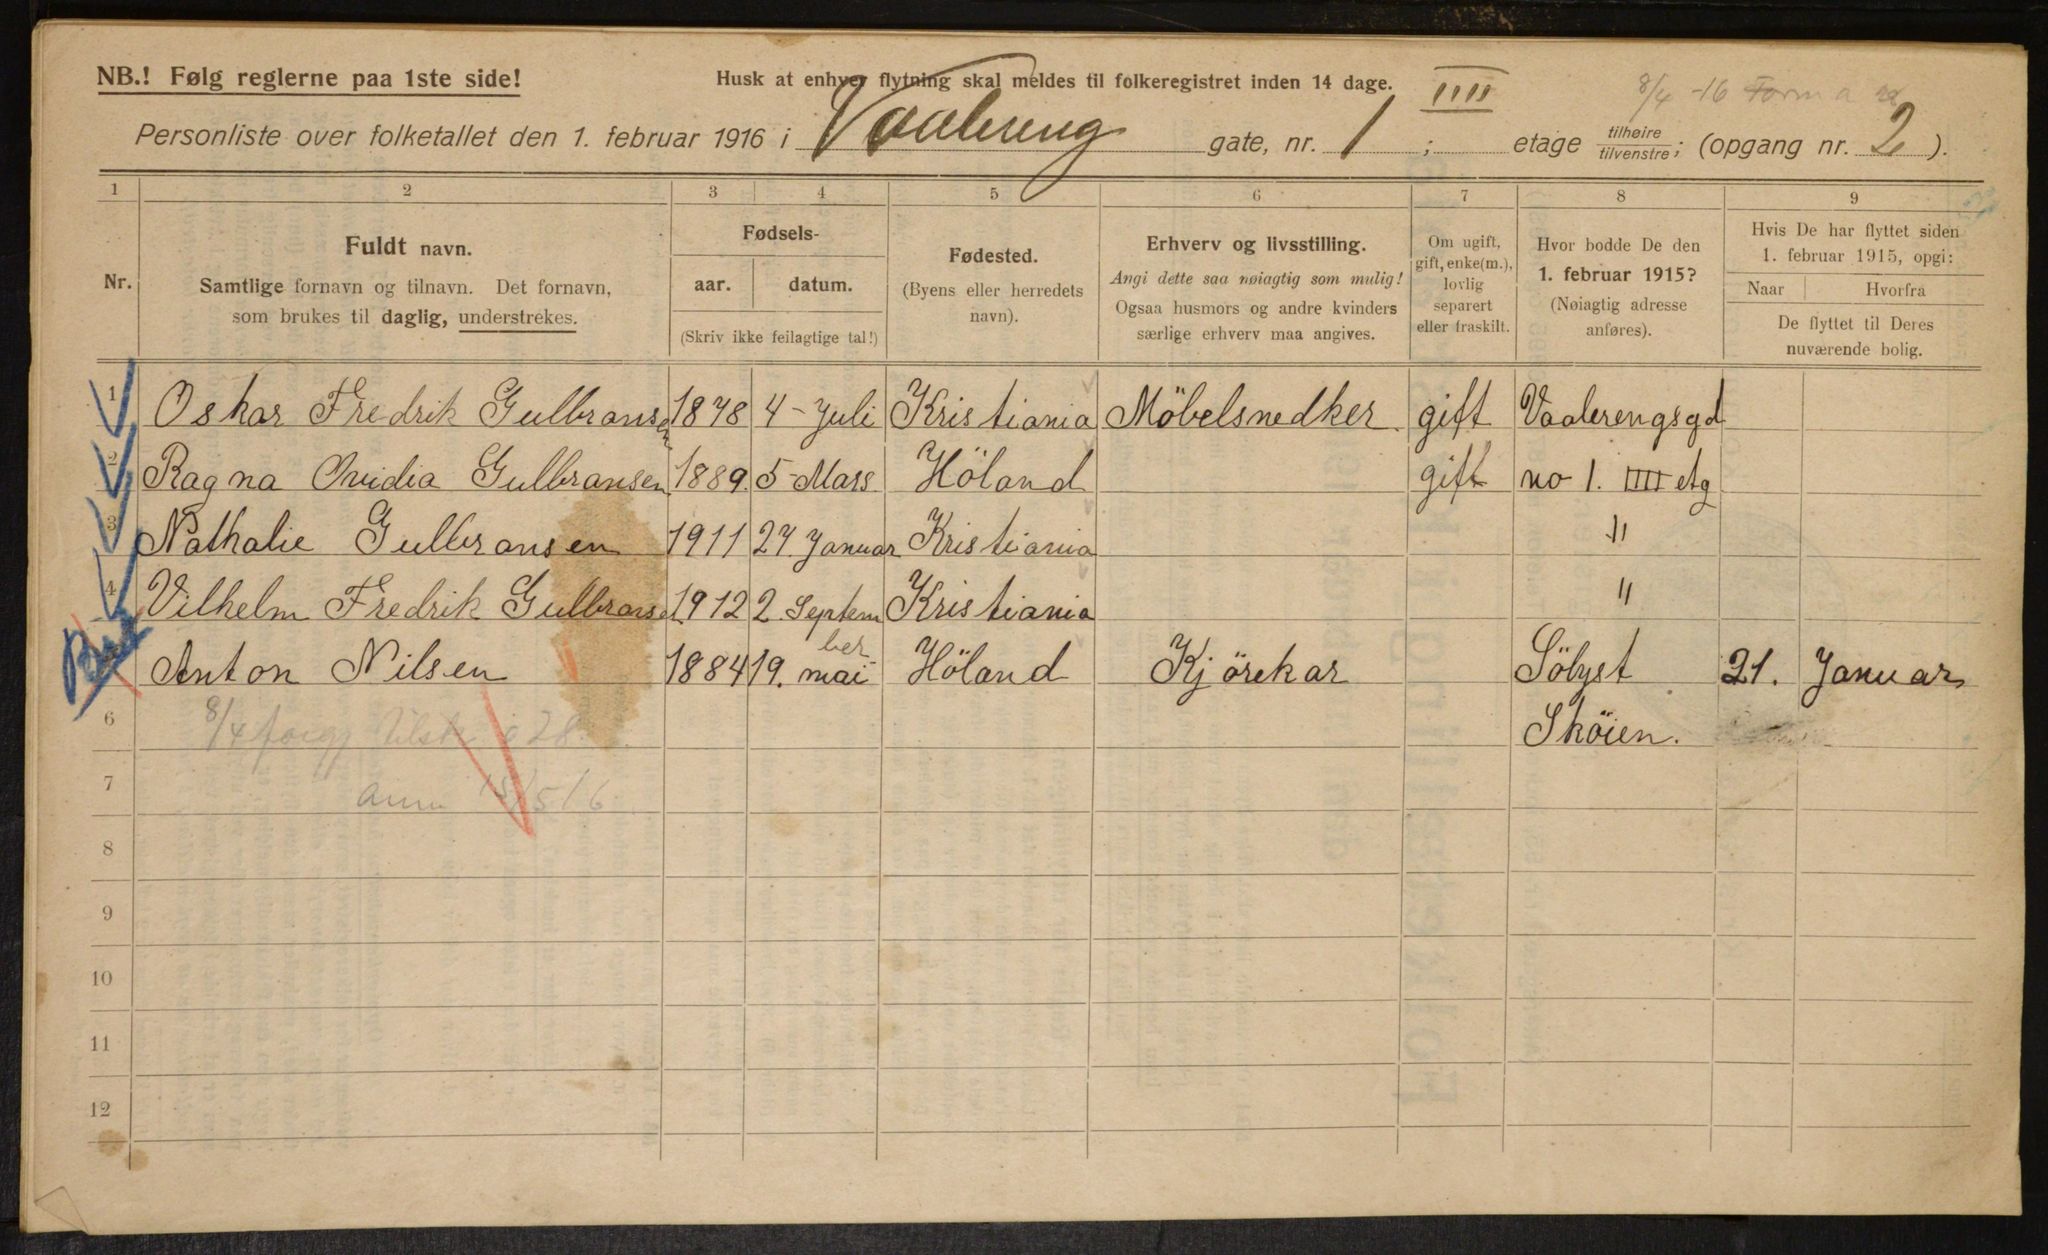 NB.! Følg reglerne paa 1ste side!
Husk at enhver flytning skal meldes til folkeregistret inden 14 dage.
8/4 -16
Personliste over folketallet den 1. februar 1916 i Vaalereng gate, nr. 1 ; IIII etage tilhøire/tilvenstre; (opgang nr. 2).
1 2 3 4 5 6 7 8 9
Nr.
Fuldt navn.
Samtlige fornavn og tilnavn. Det fornavn,
som brukes til daglig, understrekes.
Fødsels-
aar. datum.
(Skriv ikke feilagtige tal!)
Fødested.
(Byens eller herredets
navn).
Erhverv og livsstilling.
Angi dette saa nøiagtig som mulig!
Ogsaa husmors og andre kvinders
særlige erhverv maa angives.
Om ugift,
gift, enke(m.),
lovlig
separert
eller fraskilt.
Hvor bodde De den
1. februar 1915?
(Nøiagtig adresse
anføres).
Hvis De har flyttet siden
1. februar 1915, opgi:
Naar Hvorfra
De flyttet til Deres
nuværende bolig.
1 Oskar Fredrik Gulbransen 1878 4 - Juli Kristiania Möbelsnedker gift Vaalerengsgd
2 Ragna Ovidia Gulbransen 1889. 5 - Mars Höland gift no 1. IIII etg
3 Nathalie Gulbransen 1911 27. Januar Kristiania "
4 Vilhelm Fredrik Gulbransen 1912 2. September Kristiania "
Anton Nilsen 1884 19. mai Höland Kjörekar Sölyst 21. Januar
6 8/4 Sköien.
7 15/5 16
8
9
10
11
12